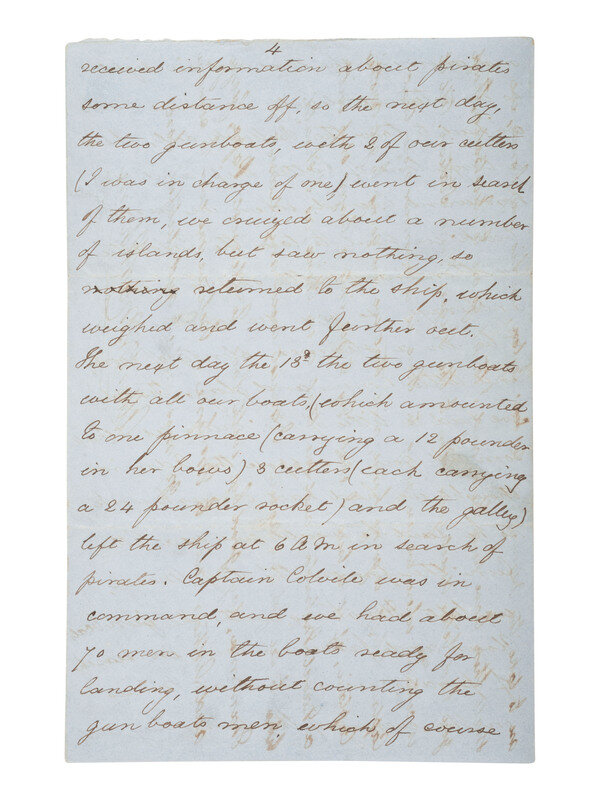 4
received information about pirates
some distance off, so the next day,
the two gunboats, with 2 of our cutters
(I was in charge of one) went in search
of them, we cruized about a number
of islands, but saw nothing, so
nothing returned to the ship, which
weighed and went further out.
The next day the 18th the two gunboats
with all our boats, (which amounted
to one pinnace (carrying a 12 pounder
in her bows) 3 cutters (each carrying
a 24 pounder rocket) and the galley)
left the ship at 6 AM in search of
pirates. Captain Colvile was in
command, and we had about
70 men in the boats ready for
landing, without counting the
gun boats men, which of course